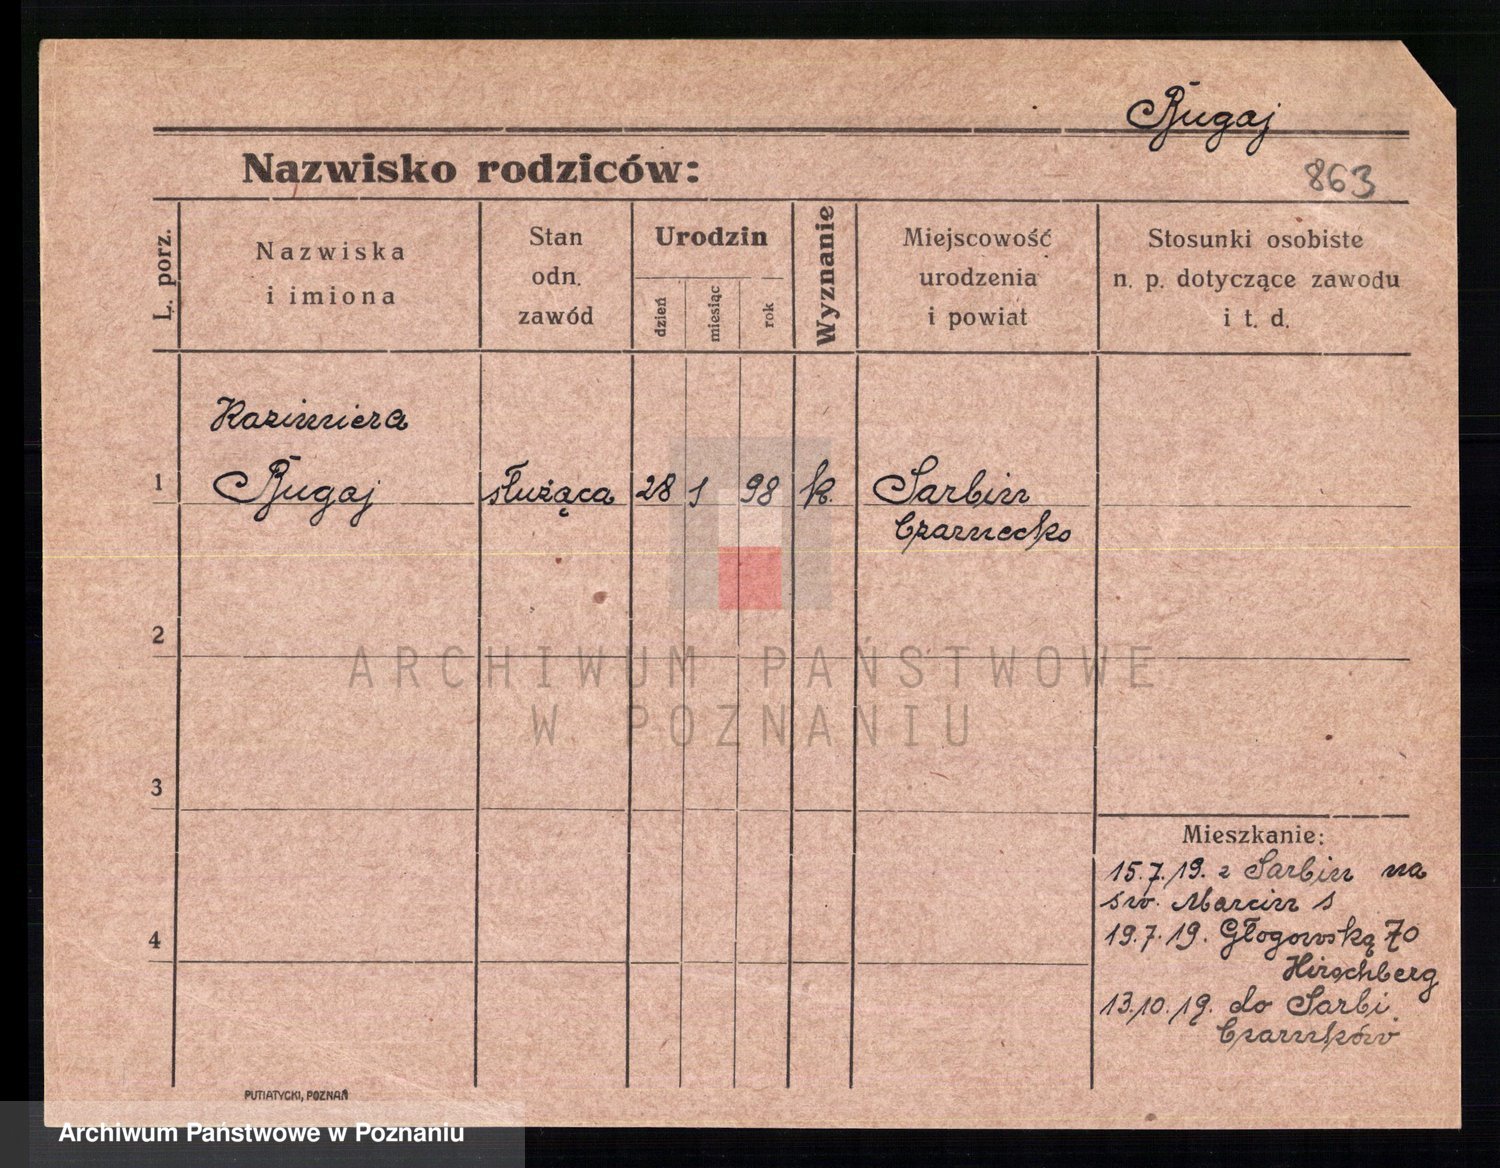 Bugaj
Nazwisko rodziców:
863
L. porz.
Nazwiska
i imiona
Stan
odn.
zawód
Urodzin
dzień
miesiąc
rok
Wyznanie
Miejscowość
urodzenia
i powiat
Stosunki osobiste
n. p. dotyczące zawodu
i t. d.
Kazimiera
1 Bugaj służąca 28 1 98 k. Sarbin
Czarnecko
2
ARCHIWUM PAŃSTWOWE
W POZNANIU
3
Mieszkanie:
15.7.19. z Sarbin na
św. Marcin
19.7.19. Głogowską 70
4
Hirschberg
13.10.19. do Sarbi
Czarnków
PUTIATYCKI, POZNAŃ
Archiwum Państwowe w Poznaniu